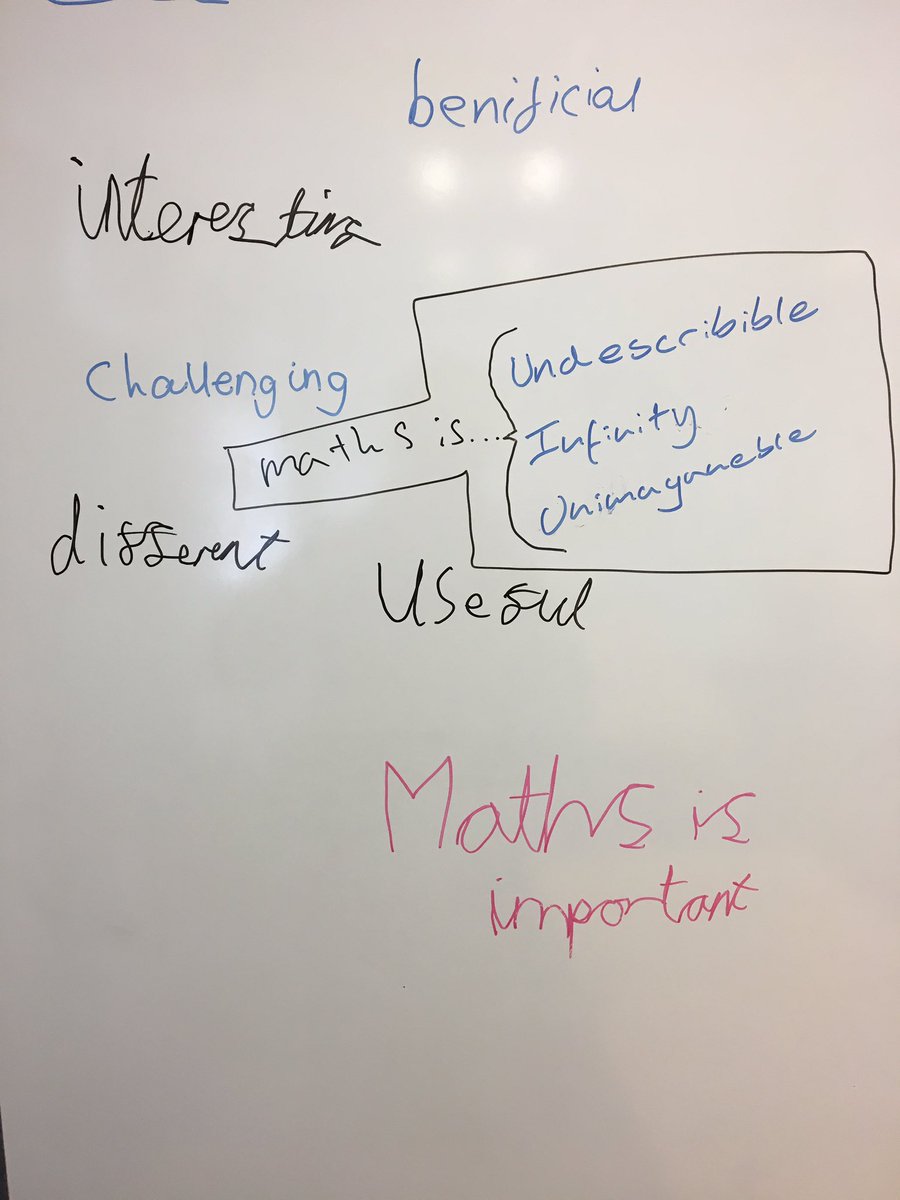 benificial
interesting
Challenging
maths is...
Undescribible
Infinity
Unimayuneble
different
Useful
Maths is
important